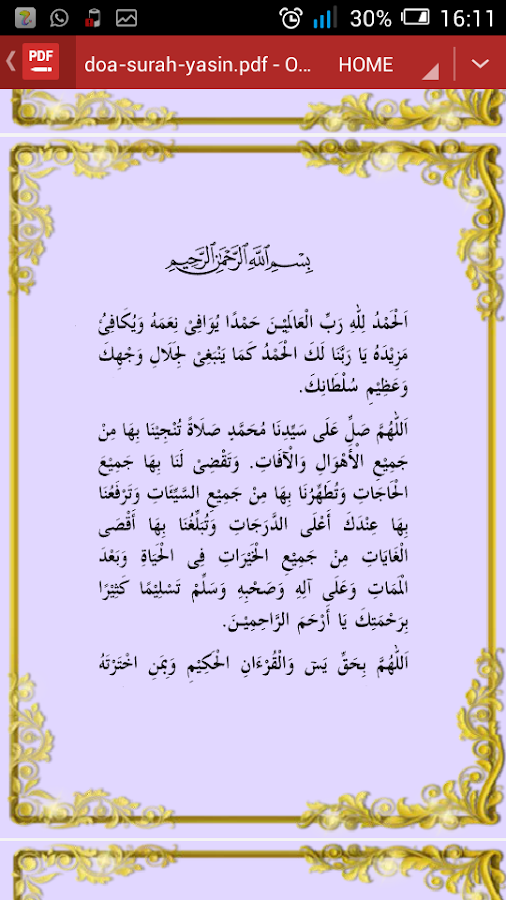 30% 16:11
PDF doa-surah-yasin.pdf - O... HOME
بِسْمِ اللَّهِ الرَّحْمَٰنِ الرَّحِيمِ
اَلْحَمْدُ لِلّٰهِ رَبِّ الْعَالَمِيْنَ حَمْدًا يُوَافِيْ نِعَمَهُ وَيُكَافِئُ
مَزِيْدَهُ يَا رَبَّنَا لَكَ الْحَمْدُ كَمَا يَنْبَغِيْ لِجَلَالِ وَجْهِكَ
وَعَظِيْمِ سُلْطَانِكَ.
اَللّٰهُمَّ صَلِّ عَلَى سَيِّدِنَا مُحَمَّدٍ صَلَاةً تُنْجِيْنَا بِهَا مِنْ
جَمِيْعِ الْأَهْوَالِ وَالْآفَاتِ. وَتَقْضِيْ لَنَا بِهَا جَمِيْعَ
الْحَاجَاتِ وَتُطَهِّرُنَا بِهَا مِنْ جَمِيْعِ السَّيِّئَاتِ وَتَرْفَعُنَا
بِهَا عِنْدَكَ أَعْلَى الدَّرَجَاتِ وَتُبَلِّغُنَا بِهَا أَقْصَى
الْغَايَاتِ مِنْ جَمِيْعِ الْخَيْرَاتِ فِى الْحَيَاةِ وَبَعْدَ
الْمَمَاتِ وَعَلَى آلِهِ وَصَحْبِهِ وَسَلِّمْ تَسْلِيْمًا كَثِيْرًا
بِرَحْمَتِكَ يَا أَرْحَمَ الرَّاحِمِيْنَ.
اَللّٰهُمَّ بِحَقِّ يٰسٓ وَالْقُرْءَانِ الْحَكِيْمِ وَبِمَنِ اخْتَرْتَهُ